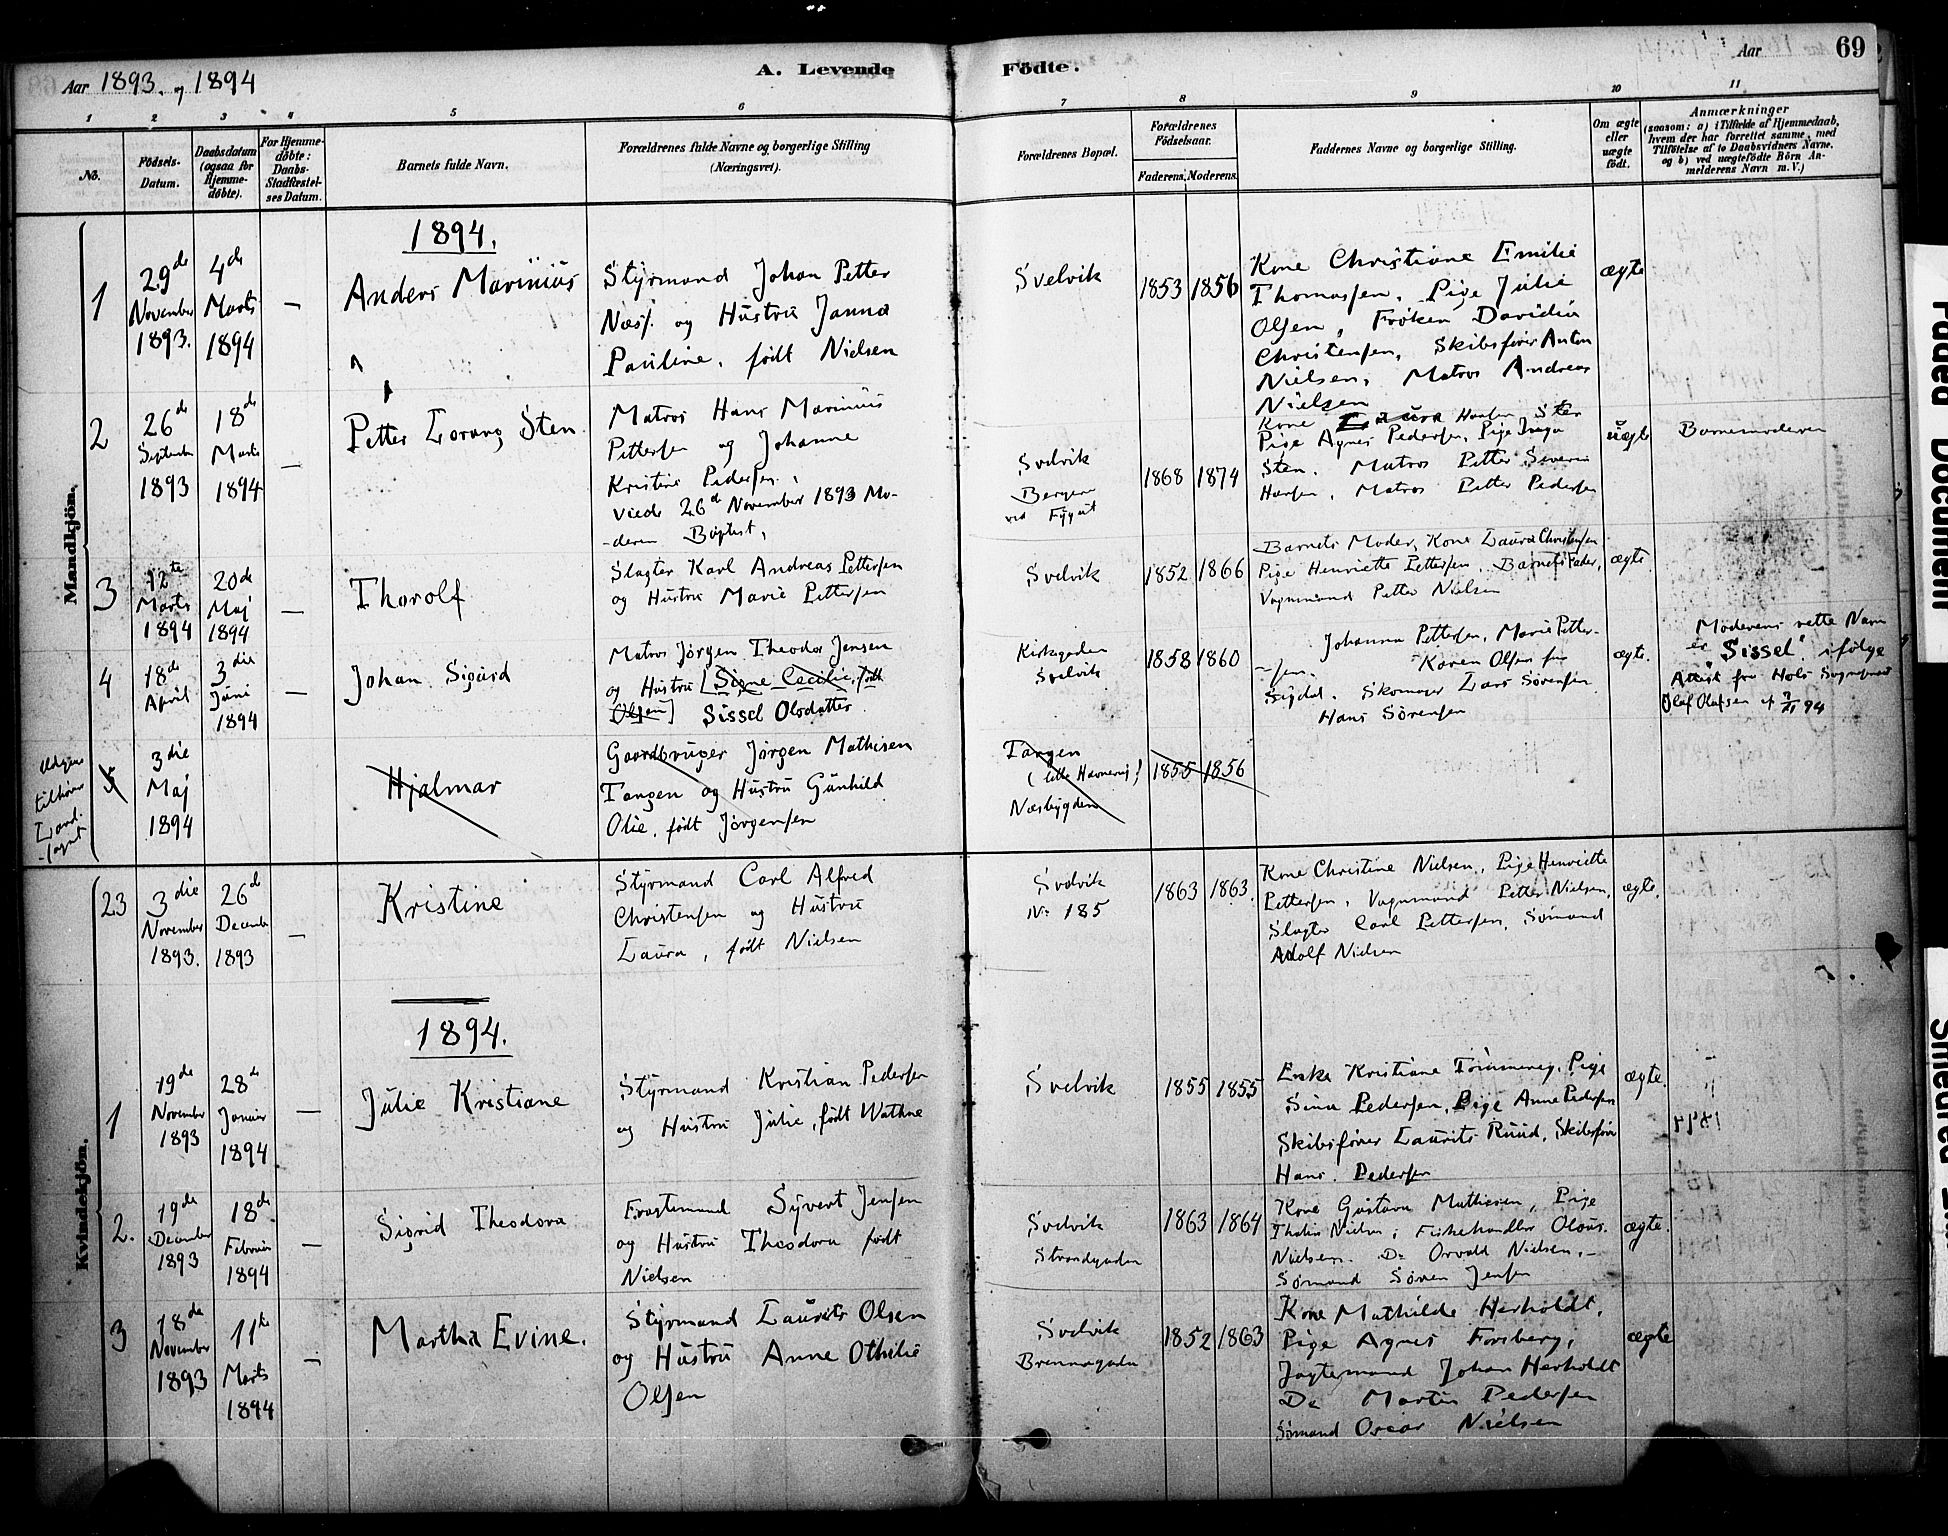 Aar 1893. og 1894
A. Levende Födte.
Aar
69
1 2 3 4 5 6 7 8 9 10 11
No.
Födsels-
Datum.
Daabsdatum
(ogsaa for
Hjemme-
døbte).
For Hjemme-
døbte:
Daabs-
Stadfæstel-
ses Datum.
Barnets fulde Navn.
Forældrenes fulde Navne og borgerlige Stilling
(Næringsvei).
Forældrenes Bopæl.
Forældrenes
Födselsaar.
Faderens. Moderens.
Faddernes Navne og borgerlige Stilling.
Om ægte
eller
uægte
födt.
Anmærkninger
(saasom: a) i Tilfælde af Hjemmedaab,
hvem der har forrettet samme, med
Tilföielse af to Daabsvidners Navne,
og b) ved uægtefödte Börn An-
melderens Navn m. V.)
Mandkjön.
1894.
1
29de
November
1893.
4de
Marts
1894
—
Anders Marinius
Styrmand Johan Petter
Næss. og Hustru Janna
Pauline, født Nielsen
Svelvik
1853
1856
Kone Christiane Emilie
Thomassen, Pige Julie
Olsen, Frøken Davidia
Christensen, Skibsfører Anton
Nielsen, Matros Andreas
Nielsen
ægte
2
26de
September
1893
18de
Marts
1894
—
Petter Lorang Sten
Matros Hans Marinius
Pettersen og Johanne
Kristine Pedersen,
viede 26d November 1893 Mo-
-deren Baptist,
Svelvik
Bergen
ved
1868
1874
Kone Laura Hansen Sten
Pige Agnes Pedersen, Pige Inga
Sten, Matros Petter Severin
Hansen, Matros Petter Pedersen
uægte
Barnemoderen
3
12te
Marts
1894
20de
Maj
1894
—
Thorolf
Slagter Karl Andreas Pettersen
og Hustru Marie Pettersen
Svelvik
1852
1866
Barnets Moder, Kone Laura Christensen
Pige Henriette Pettersen, Barnets Fader,
Vognmand Petter Nielsen
ægte
4
18de
April
3die
Juni
1894
—
Johan Sigurd
Matros Jørgen Theodor Jensen
og Hustru [Signe Cecilie, født
Olsen] Sissel Olsdatter
Kirkegaden
Svelvik
1858
1860
Johanna Pettersen, Marie Petter-
-sen, Karen Olsen fra
Sigdal. Skomager Lars Sørensen
Hans Sørensen
ægte.
Moderens rette Navn
er "Sissel" ifølge
Attest fra Hols Sogneprest
Olaf Olafsen af 7/11 94
Udgaar
tilhører
5
3die
Maj
1894
Hjalmar
Gaardbruger Jørgen Mathisen
Tangen og Hustru Gunhild
Olie, født Jørgensen
Tangen
Næsbygden
1855
1856
Kvindekjön.
23
3die
November
1893.
26d
Decemb
1893
—
Kristine
Styrmand Carl Alfred
Christensen og Hustru
Laura, født Nielsen
Svelvik
No 185
1863
1863.
Kone Christine Nielsen, Pige Henriette
Pettersen, Vognmand Petter Nielsen,
Slagter Carl Pettersen, Sømand
Adolf Nielsen
ægte.
1894.
1
19de
November
1893
28de
Januar
1894
—
Julie Kristiane
Styrmand Kristian Pedersen
og Hustru Julie, født Wathne
Svelvik
1855
1855
Enke Kristiane Tømmereg, Pige
Sina Pedersen, Pige Anne Pedersen
Skibsfører Laurits Ruud, Skibsfører
Hans Pedersen
ægte.
2.
19de
December
1893
18de
Februar
1894
—
Sigrid Theodora
Fragtemand Syvert Jensen
og Hustru Theodora født
Nielsen
Svelvik
Strandgaden
1863
1864
Kone Gustava Mathiesen, Pige
Thalia Nielsen, Fiskehandler Olaus
Nielsen. Do Orvald Nielsen,
Sømand Søren Jensen
ægte.
3
18de
November
1893
11te
Marts
1894
—
Martha Evine.
Styrmand Laurits Olsen
og Hustru Anne Othilie
Olsen
Svelvik
Brennagaden
1852
1863
Kone Mathilde Herholdt,
Pige Agnes Forsberg,
Jagtemand Johan Herholdt
Do Martin Pedersen
Sømand Oscar Nielsen
ægte
Faded Document
Smeared